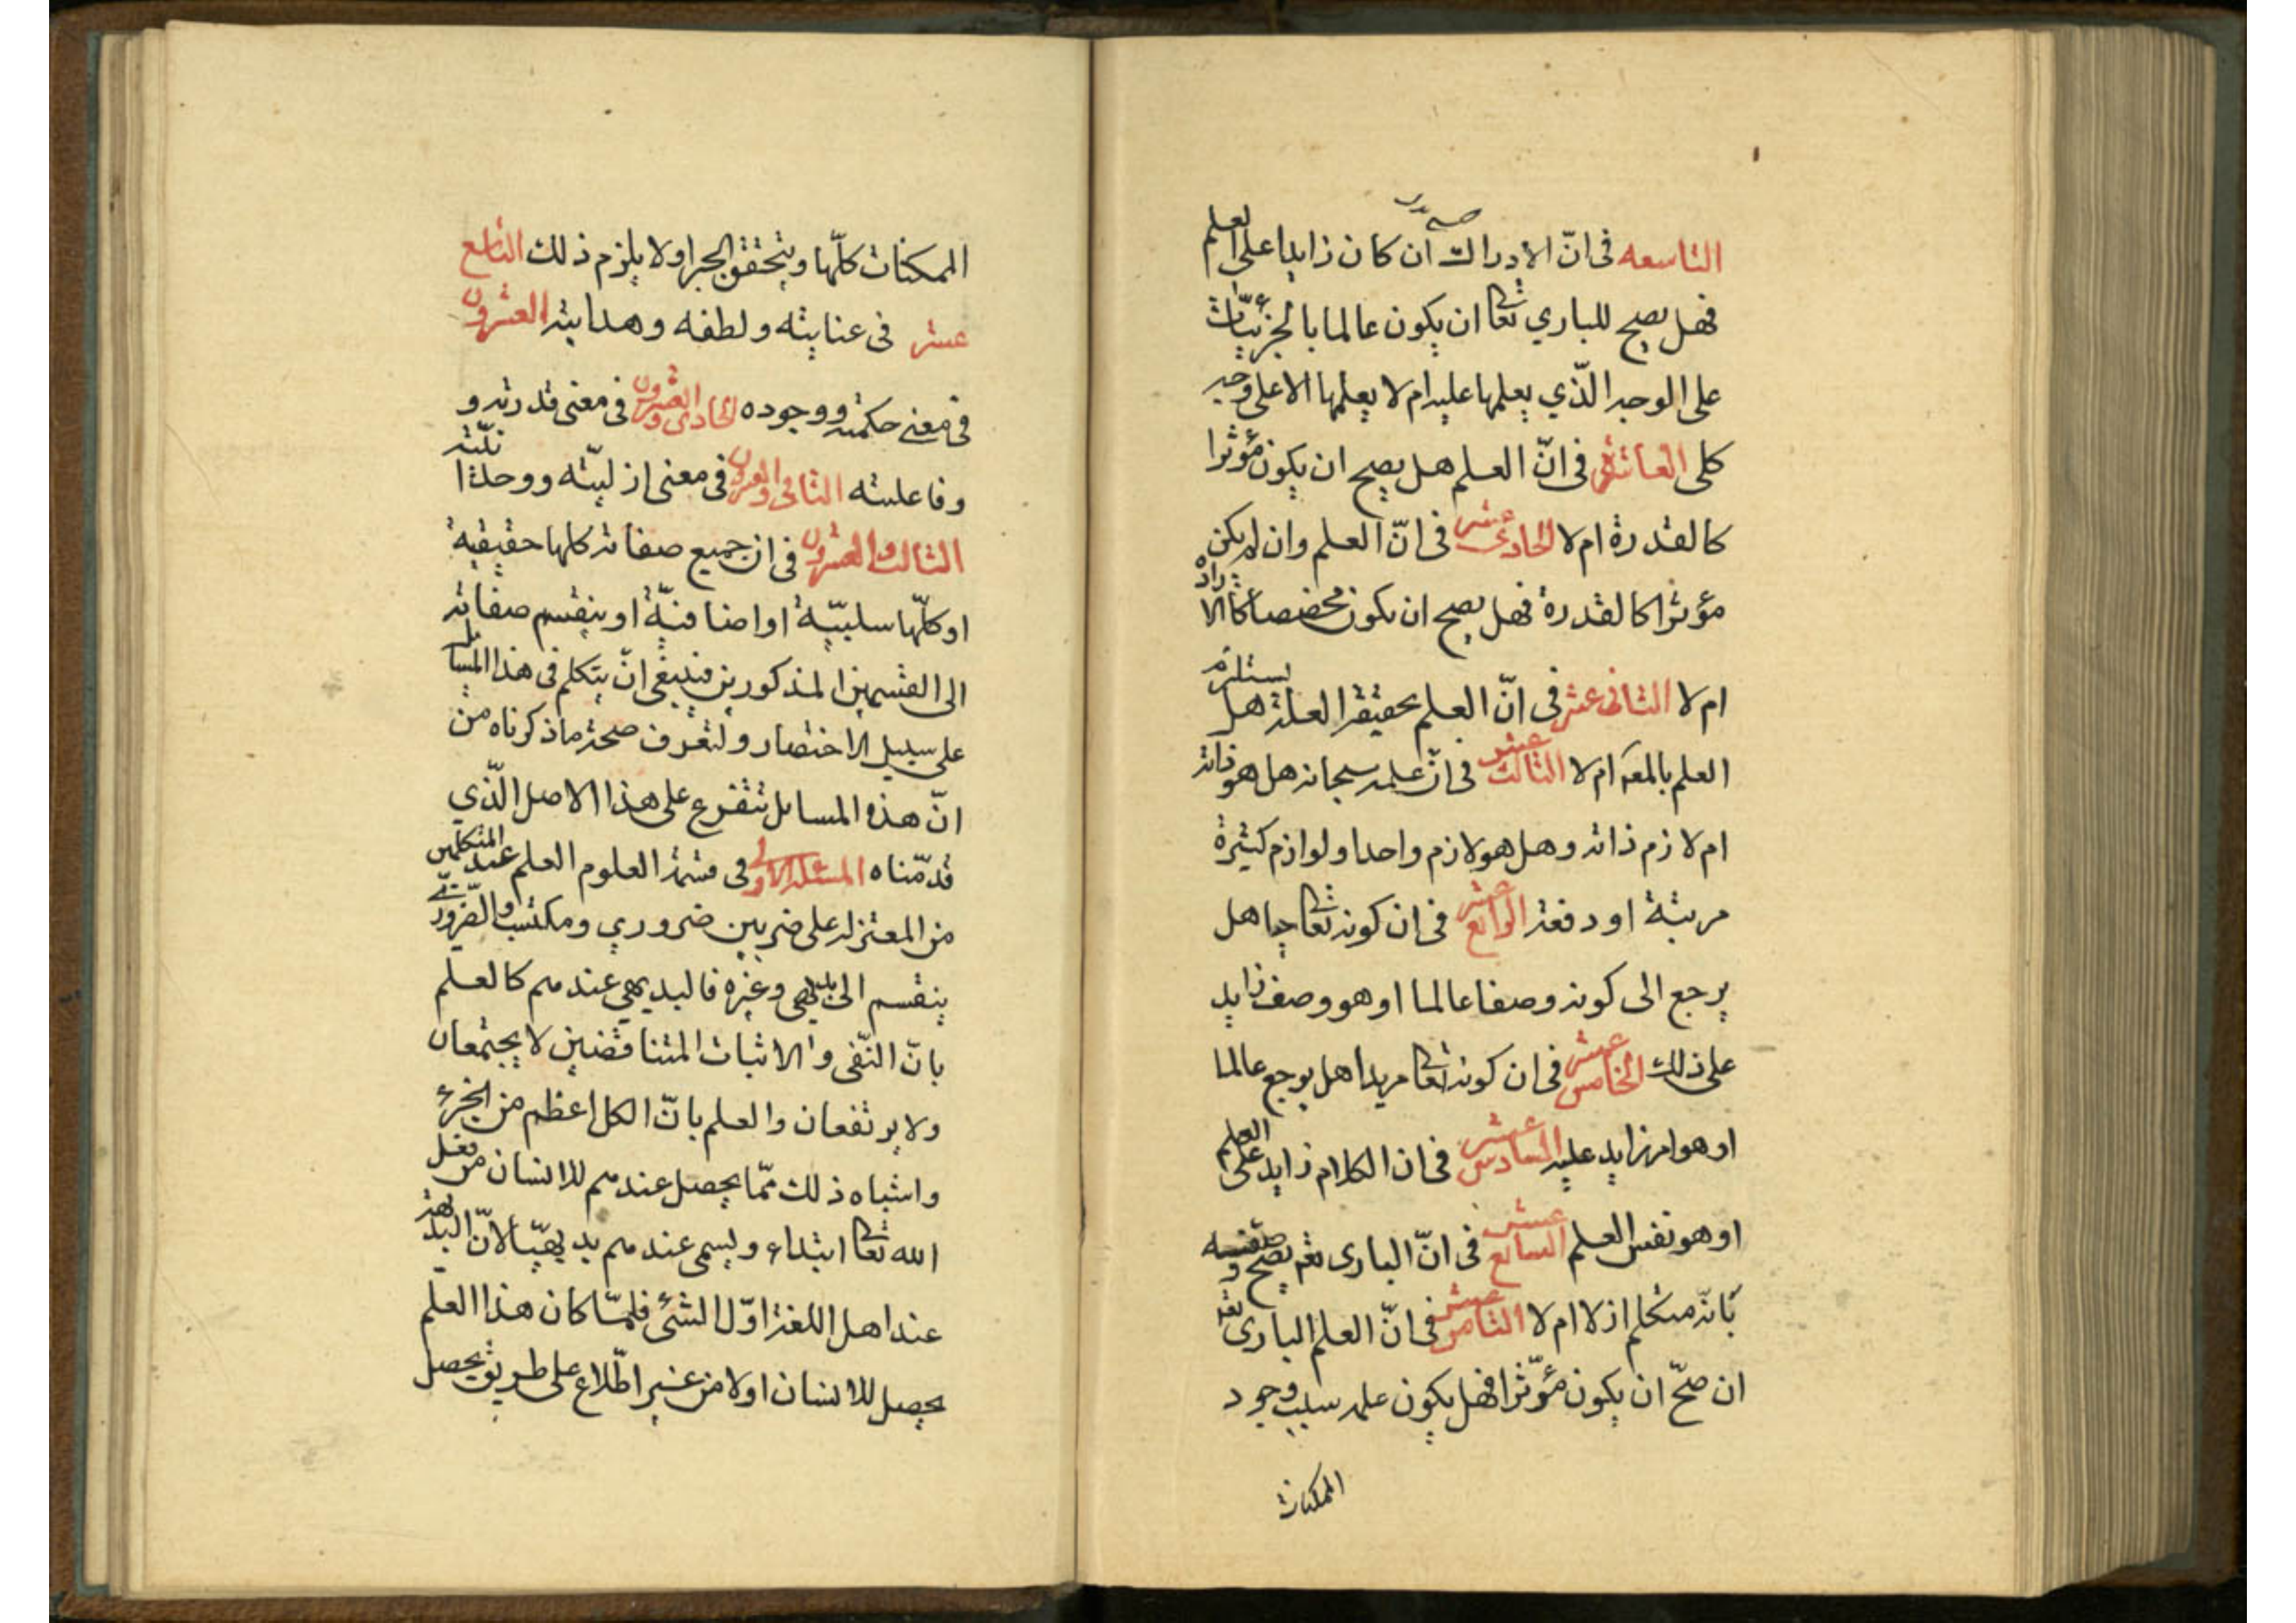 التاسعه في انّ الادراك ان كان زايدا على العلم
فهل يصح للباري تعا ان يكون عالما بالجزئيّات
على الوجه الّذي يعلمها عليه ام لا يعلمها الا على وجه
كلى العاشر في انّ العلم هل يصح ان يكون مؤثرا
كالقدرة ام لا الحادى عشر في انّ العلم وان لم يكن
مؤثرا كالقدرة فهل يصح ان يكون مخصصا كالارادة
ام لا الثانى عشر في انّ العلم بحقيقة العلة هل يستلزم
العلم بالمعه ام لا الثالث عشر في انّ علمه سبحانه هل هو ذاته
ام لازم ذاته وهل هو لازم واحد او لوازم كثيرة
مرتبة او دفعة الرابع عشر في ان كونه تعا حيا هل
يرجع الى كونه وصفا عالما او هو وصف زايد
على ذلك الخامس عشر في ان كونه تعا مريدا هل يرجع عالما
او هو امر زايد عليه السادس عشر في ان الكلام زايد على العلم
او هو نفس العلم السابع عشر في انّ البارى تعه يصح وصفه
بانّه متكلم ازلا ام لا الثامن عشر في انّ العلم البارى تعه
ان صحّ ان يكون مؤثّرا فهل يكون علمه سبب وجود
الممكنات
الممكنات كلّها ويتحقق الجبر او لا يلزم ذلك التاسع
عشر في عنايته ولطفه وهدايته العشرون
في معنى حكمته ووجوده الحادى والعشرون في معنى قدرته و
وفاعليته الثانى والعشرون في معنى ازليّته ووحدانيّته
الثالث والعشرون في ان جميع صفاته كلها حقيقية
او كلّها سلبيّة او اضافيّة او ينقسم صفاته
الى القسمين المذكورين فينبغى انّ يتكلم في هذا المسايل
على سبيل الاختصار ولتعرف صحة ما ذكرناه من
انّ هذه المسايل تتفرع على هذا الاصل الّذي
قدّمناه المسئلة الاولى في قسمة العلوم العلم عند المتكلمين
من المعتزله على ضربين ضروري ومكتسب والضّروريّ
ينقسم الى بديهي وغيره فالبديهي عندهم كالعلم
بانّ النّفى والاثبات المتناقضين لا يجتمعان
ولا يرتفعان والعلم بانّ الكل اعظم من الجزء
واشباه ذلك ممّا يحصل عندهم للانسان من فعل
الله تعا ابتداء ويسمى عندهم بديهيّا لانّ البديهة
عند اهل اللغة اوّل الشئ فلمّا كان هذا العلم
يحصل للانسان اولا من غير اطّلاع على طريق يحصل